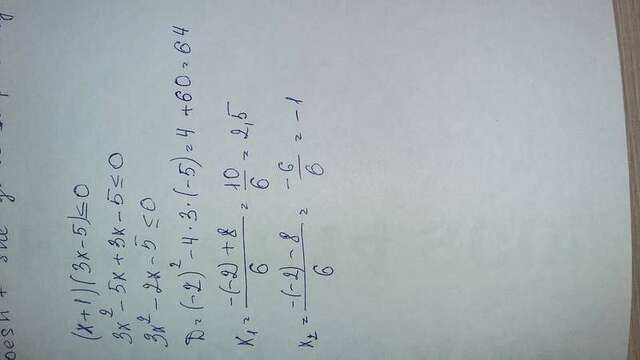 (x+1)(3x-5)≤0
3x²-5x+3x-5≤0
3x²-2x-5≤0
D=(-2)²-4·3·(-5)=4+60=64
x₁=\frac{-(-2)+8}{6}=\frac{10}{6}=2,5
x₂=\frac{-(-2)-8}{6}=\frac{-6}{6}=-1